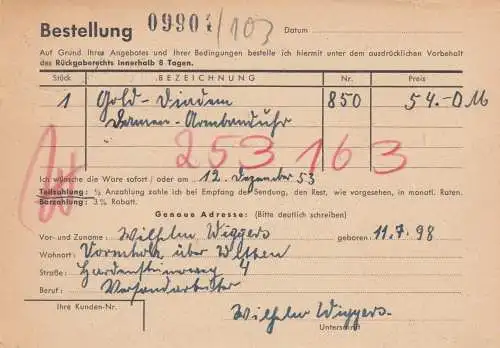 Bestellung 09901/103 Datum
Auf Grund Ihres Angebotes und Ihrer Bedingungen bestelle ich hiermit unter dem ausdrücklichen Vorbehalt
des Rückgaberechts innerhalb 8 Tagen.
Stück BEZEICHNUNG Nr. Preis
1 Gold-Diadem 850 54.-DM
Damen-Armbanduhr
253163
Ich wünsche die Ware sofort / oder am 12. Dezember 53
Teilzahlung: ⅓ Anzahlung zahle ich bei Empfang der Sendung, den Rest, wie vorgesehen, in monatl. Raten.
Barzahlung: 3% Rabatt.
Genaue Adresse: (Bitte deutlich schreiben)
Vor- und Zuname: Wilhelm Wiggers geboren 11.7.98
Wohnort: Vormholz über Witten
Straße: Hardensteinerweg 4
Beruf: Versandarbeiter
Ihre Kunden-Nr.
Wilhelm Wiggers.
Unterschrift